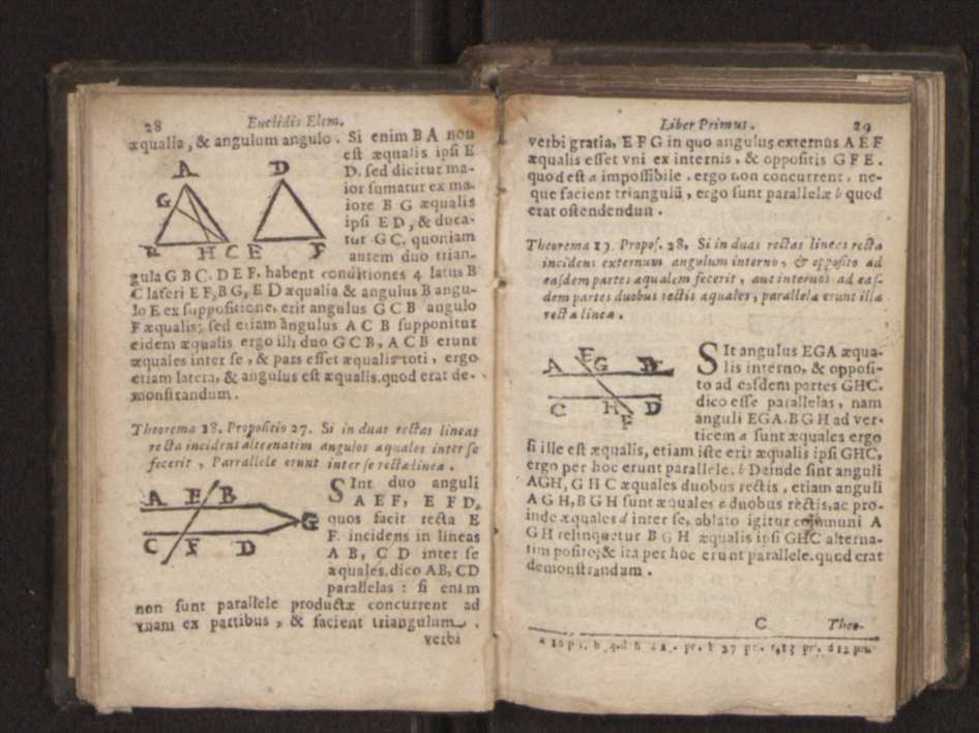 28 Euclidis Elem.
æqualia, & angulum angulo. Si enim B A non
est æqualis ipsi E
D. sed dicitur ma-
ior sumatur ex ma-
iore B G æqualis
ipsi E D, & duca-
tur G C. quoniam
autem duo trian-
A D
G
B H C E F
gula G B C. D E F. habent conditiones 4 latus B
C lateri E F, B G, E D æqualia & angulus B angu-
lo E ex suppositione, erit angulus G C B angulo
F æqualis; sed etiam angulus A C B supponitur
eidem æqualis ergo illi duo G C B, A C B erunt
æquales inter se, & pars esset æqualis toti, ergo
etiam latera, & angulus est æqualis. quod erat de-
monstrandum.
Theorema 18. Propositio 27. Si in duas rectas lineas
recta incidens alternatim angulos æquales inter se
fecerit, Parrallele erunt inter se rectæ lineæ.
SInt duo anguli
A E F, E F D,
quos facit recta E
F. incidens in lineas
A B, C D inter se
æquales. dico AB, CD
parallelas: si enim
A E B
G
C F D
non sunt parallele productæ concurrent ad
vnam ex partibus, & facient triangulum.
verbi
Liber Primus. 29
verbi gratia, E F G in quo angulus externus A E F
æqualis esset vni ex internis, & oppositis G F E.
quod est a impossibile. ergo non concurrent. ne-
que facient triangulũ, ergo sunt parallelæ b quod
erat ostendendun.
Theorema 19. Propos. 28. Si in duas rectas lineas recta
incidens externum angulum interno, & opposito ad
easdem partes æqualem fecerit, aut internos ad eas-
dem partes duobus rectis æquales, parallelæ erunt illæ
rectæ lineæ.
E
A G B
C H D
F
SIt angulus EGA æqua-
lis interno, & opposi-
to ad easdem partes GHC.
dico esse parallelas, nam
anguli EGA. B G H ad ver-
ticem a sunt æquales ergo
si ille est æqualis, etiam iste erit æqualis ipsi GHC,
ergo per hoc erunt parallele. b Deinde sint anguli
AGH, G H C æquales duobus rectis, etiam anguli
A G H, B G H sunt æquales c duobus rectis, ac pro-
inde æquales d inter se, ablato igitur communi A
G H relinquetur B G H æqualis ipsi GHC alterna-
tim posito; & ita per hoc erunt parallele. quod erat
demonstrandum.
C Theo-